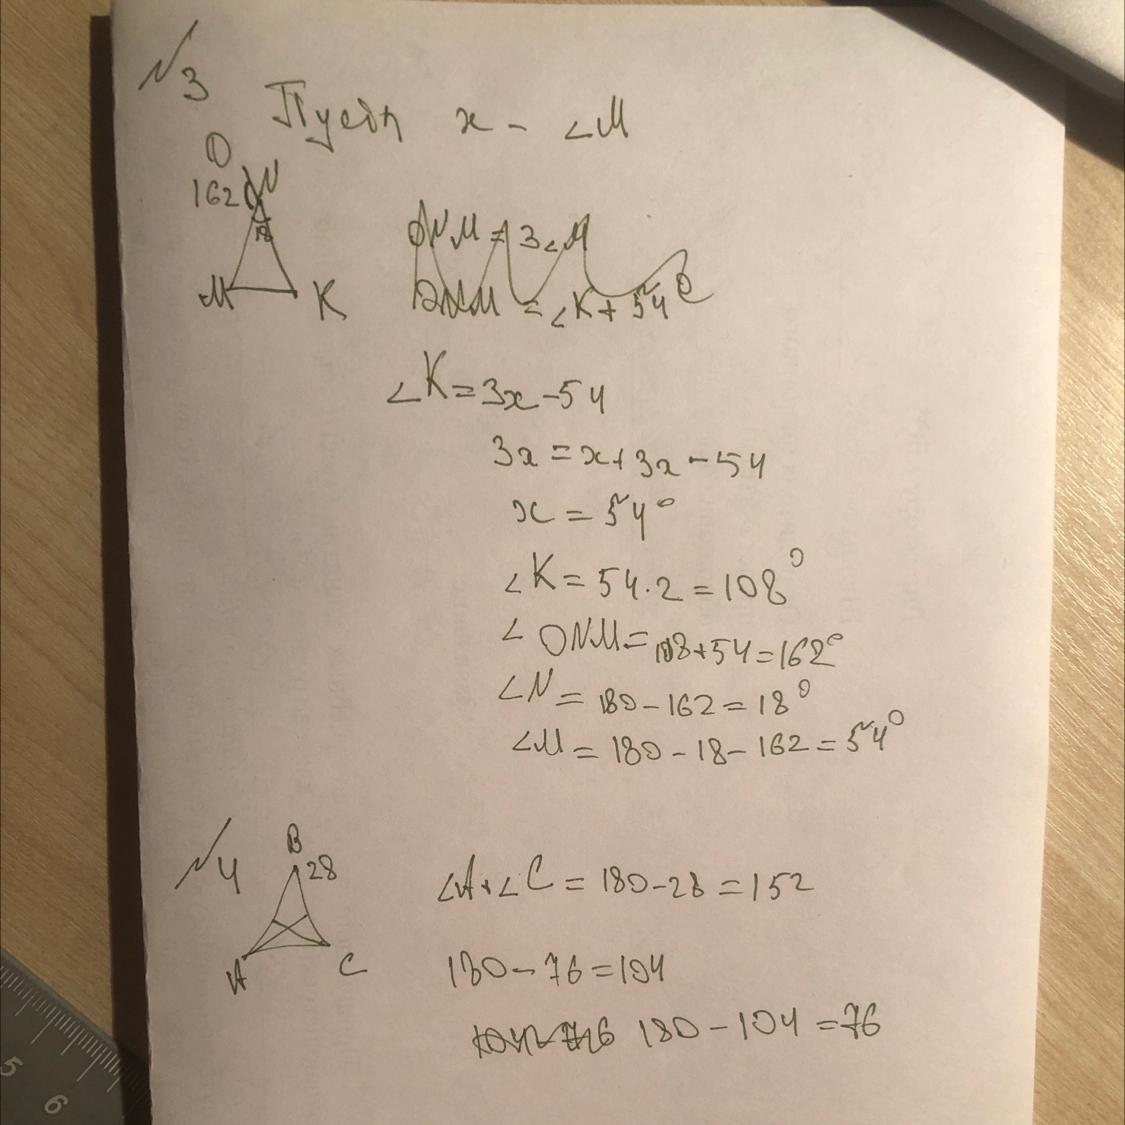 №3
Пусть x - ∠M
O
162 N
18
M K
ONM = 3∠M
ONM = ∠K + 54
∠K = 3x - 54
3x = x + 3x - 54
x = 54°
∠K = 54 · 2 = 108°
∠ ONM = 108 + 54 = 162°
∠N = 180 - 162 = 18°
∠M = 180 - 18 - 162 = 54°
№4
B
28
A C
∠A + ∠C = 180 - 28 = 152
180 - 76 = 104
180 - 104 = 76
5
6